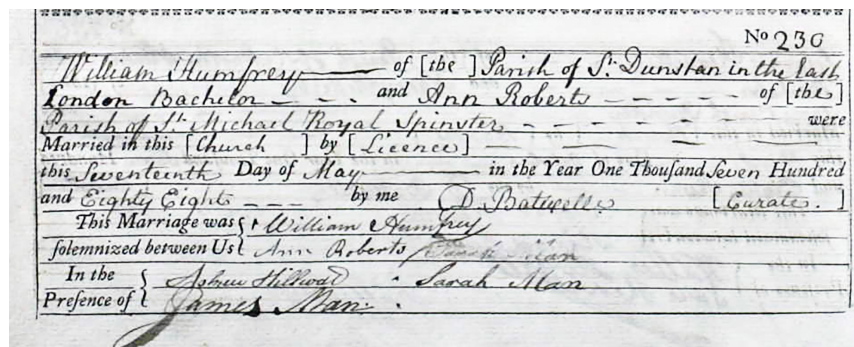 No 230
William Humfrey of [the] Parish of St. Dunstan in the East
London Bachelor and Ann Roberts of [the]
Parish of St. Michael Royal Spinster were
Married in this [Church] by [Licence]
this Seventeenth Day of May in the Year One Thousand Seven Hundred
and Eighty Eight by me D. Batwell [Curate.]
This Marriage was William Humfrey
solemnized between Us Ann Roberts Sarah Man
In the Sarah Man
Presence of James Man